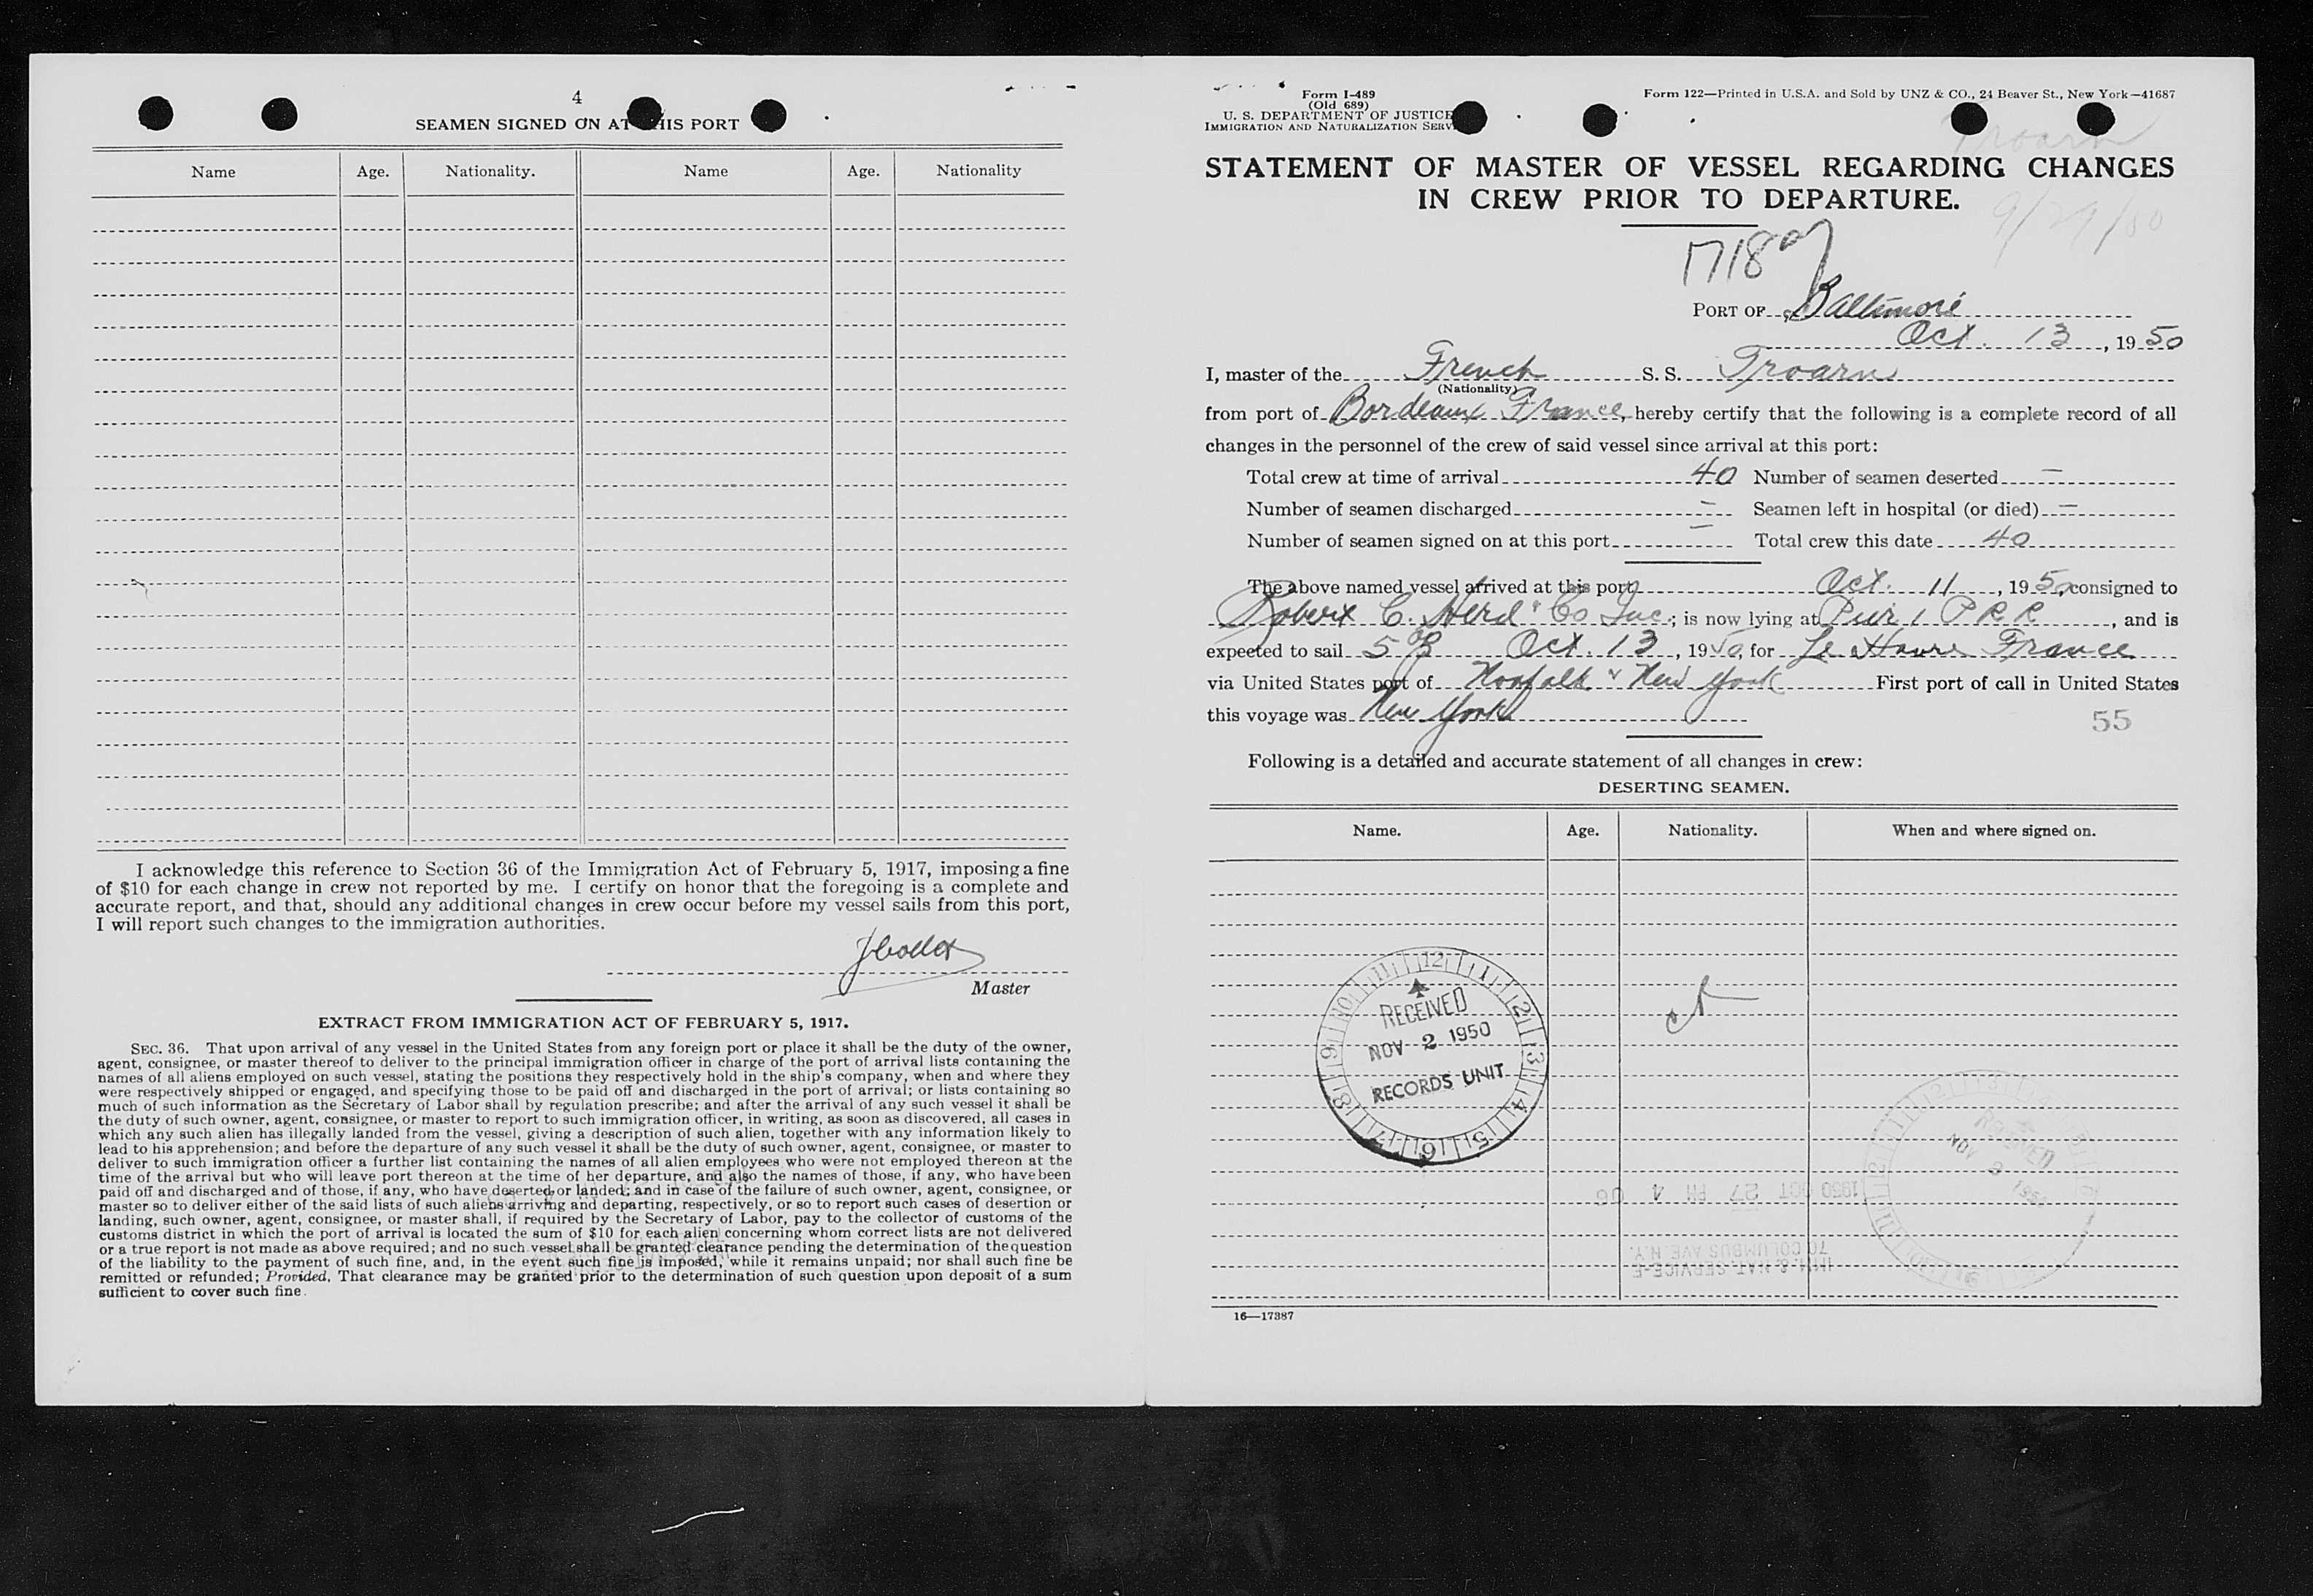 4
SEAMEN SIGNED ON AT THIS PORT
Name Age. Nationality. Name Age. Nationality
I acknowledge this reference to Section 36 of the Immigration Act of February 5, 1917, imposing a fine
of $10 for each change in crew not reported by me. I certify on honor that the foregoing is a complete and
accurate report, and that, should any additional changes in crew occur before my vessel sails from this port,
I will report such changes to the immigration authorities.
Master
EXTRACT FROM IMMIGRATION ACT OF FEBRUARY 5, 1917.
SEC. 36. That upon arrival of any vessel in the United States from any foreign port or place it shall be the duty of the owner,
agent, consignee, or master thereof to deliver to the principal immigration officer in charge of the port of arrival lists containing the
names of all aliens employed on such vessel, stating the positions they respectively hold in the ship's company, when and where they
were respectively shipped or engaged, and specifying those to be paid off and discharged in the port of arrival; or lists containing so
much of such information as the Secretary of Labor shall by regulation prescribe; and after the arrival of any such vessel it shall be
the duty of such owner, agent, consignee, or master to report to such immigration officer, in writing, as soon as discovered, all cases in
which any such alien has illegally landed from the vessel, giving a description of such alien, together with any information likely to
lead to his apprehension; and before the departure of any such vessel it shall be the duty of such owner, agent, consignee, or master to
deliver to such immigration officer a further list containing the names of all alien employees who were not employed thereon at the
time of the arrival but who will leave port thereon at the time of her departure, and also the names of those, if any, who have been
paid off and discharged and of those, if any, who have deserted or landed; and in case of the failure of such owner, agent, consignee, or
master so to deliver either of the said lists of such aliens arriving and departing, respectively, or so to report such cases of desertion or
landing, such owner, agent, consignee, or master shall, if required by the Secretary of Labor, pay to the collector of customs of the
customs district in which the port of arrival is located the sum of $10 for each alien concerning whom correct lists are not delivered
or a true report is not made as above required; and no such vessel shall be granted clearance pending the determination of the question
of the liability to the payment of such fine, and, in the event such fine is imposed, while it remains unpaid; nor shall such fine be
remitted or refunded; Provided, That clearance may be granted prior to the determination of such question upon deposit of a sum
sufficient to cover such fine.
Form I-489
(Old 689)
U. S. DEPARTMENT OF JUSTICE
IMMIGRATION AND NATURALIZATION SERV
Form 122—Printed in U.S.A. and Sold by UNZ & CO., 24 Beaver St., New York—41687
Troarn
STATEMENT OF MASTER OF VESSEL REGARDING CHANGES
IN CREW PRIOR TO DEPARTURE.
9/29/50
PORT OF Baltimore
Oct. 13, 1950
I, master of the French S. S. Troarn
(Nationality)
from port of Bordeaux France, hereby certify that the following is a complete record of all
changes in the personnel of the crew of said vessel since arrival at this port:
Total crew at time of arrival 40 Number of seamen deserted —
Number of seamen discharged — Seamen left in hospital (or died) —
Number of seamen signed on at this port — Total crew this date 40
The above named vessel arrived at this port Oct. 11, 1950, consigned to
Robert C. Herd & Co Inc.; is now lying at Pier 1 P R R, and is
expected to sail 5 Oct. 13, 1950, for Le Havre France
via United States port of Norfolk & New York First port of call in United States
this voyage was New York
55
Following is a detailed and accurate statement of all changes in crew:
DESERTING SEAMEN.
Name. Age. Nationality. When and where signed on.
12 1 2 3 4 5 6 7 8 9 10 11
RECEIVED
NOV 2 1950
RECORDS UNIT
RECEIVED
NOV 3 195
1950 OCT 27 PM 4 06
70 COLUMBUS AVE. N.Y.
IMM. & NAT. SERVICE-E
16—17387